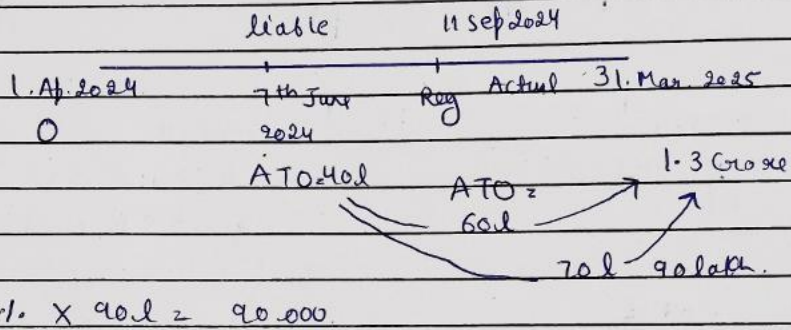 liable 11 sep 2024
1. Ap. 2024 7th June Reg Actual 31. Mar. 2025
0 2024
ATO=40l ATO = 1.3 Crore
60l
70l 90lakh.
1. X 90l = 90.000